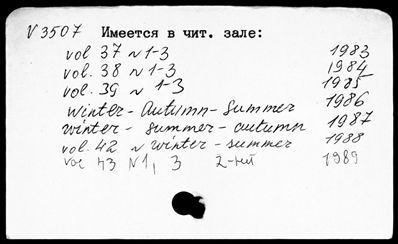 V 3507 Имеется в чит. зале:
vol. 37 N 1-3 1983
vol. 38 N 1-3 1984
vol. 39 N 1-3 1985
winter - autumn - summer 1986
winter - summer - autumn 1987
vol. 42 N winter - summer 1988
vol 43 N1, 3 1989